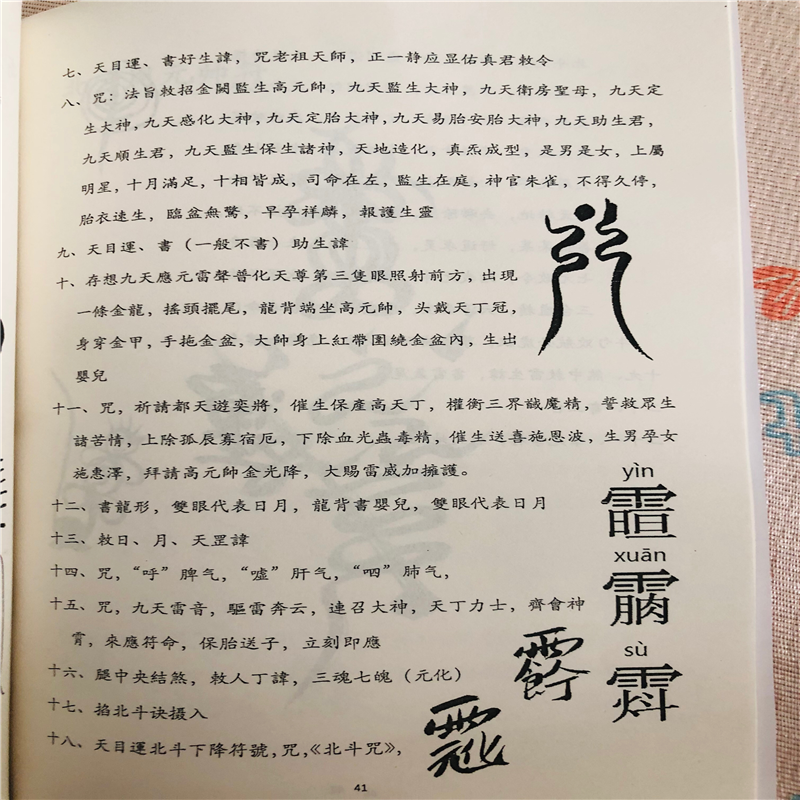 七、天目運、書好生諱，咒老祖天師，正一静应显佑真君敕令
八、咒：法旨敕招金闕監生高元帥，九天監生大神，九天衛房聖母，九天定
生大神，九天感化大神，九天定胎大神，九天易胎安胎大神，九天助生君，
九天順生君，九天監生保生諸神，天地造化，真炁成型，是男是女，上屬
明星，十月滿足，十相皆成，司命在左，監生在庭，神官朱雀，不得久停，
胎衣速生，臨盆無驚，早孕祥麟，報護生靈
九、天目運、書（一般不書）助生諱
十、存想九天應元雷聲普化天尊第三隻眼照射前方，出現
一條金龍，搖頭擺尾，龍背端坐高元帥，头戴天丁冠，
身穿金甲，手拖金盆，大帥身上紅帶圍繞金盆內，生出
嬰兒
十一、咒，祈請都天遊奕將，催生保產高天丁，權衡三界誠魔精，誓救眾生
諸苦情，上除孤辰寡宿厄，下除血光蟲毒精，催生送喜施恩波，生男孕女
施惠澤，拜請高元帥金光降，大賜雷威加擁護。
十二、書龍形，雙眼代表日月，龍背書嬰兒，雙眼代表日月
十三、敕日、月、天罡諱
十四、咒，“呼”脾气，“噓”肝气，“呬”肺气，
十五、咒，九天雷音，驅雷奔云，連召大神，天丁力士，齊會神
霄，來應符命，保胎送子，立刻即應
十六、腿中央結煞，敕人丁諱，三魂七魄（元化）
十七、掐北斗诀摄入
十八、天目運北斗下降符號，咒，《北斗咒》，
yìn
xuān
sù
41